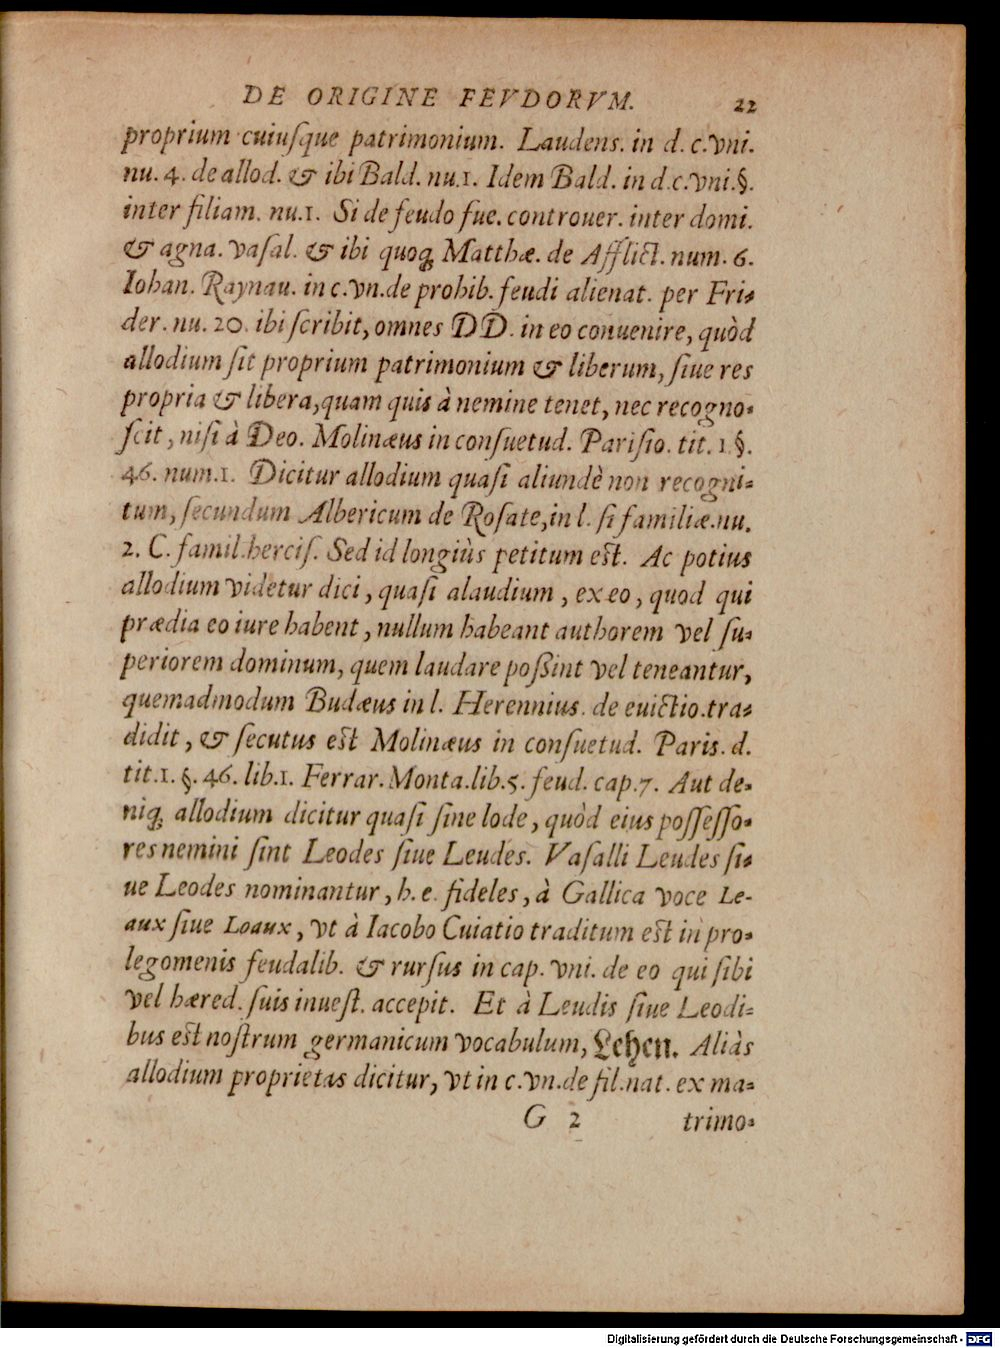 DE ORIGINE FEVDORVM. 22
proprium cuiuſque patrimonium. Laudens. in d. c. vni.
nu. 4. de allod. & ibi Bald. nu. 1. Idem Bald. in d. c. vni. §.
inter filiam. nu. 1. Si de feudo fue. controuer. inter domi.
& agna. vaſal. & ibi quoq; Matthæ. de Afflict. num. 6.
Iohan. Raynau. in c. vn. de prohib. feudi alienat. per Fri-
der. nu. 20. ibi ſcribit, omnes DD. in eo conuenire, quòd
allodium ſit proprium patrimonium & liberum, ſiue res
propria & libera, quam quis à nemine tenet, nec recogno-
ſcit, niſi à Deo. Molinæus in conſuetud. Pariſio. tit. 1. §.
46. num. 1. Dicitur allodium quaſi aliundè non recogni-
tum, ſecundum Albericum de Roſate, in l. ſi familiæ. nu.
2. C. famil. herciſ. Sed id longiùs petitum est. Ac potius
allodium videtur dici, quaſi alaudium, ex eo, quod qui
prædia eo iure habent, nullum habeant authorem vel ſu-
periorem dominum, quem laudare poßint vel teneantur,
quemadmodum Budæus in l. Herennius. de euictio. tra-
didit, & ſecutus est Molinæus in conſuetud. Paris. d.
tit. 1. §. 46. lib. 1. Ferrar. Monta. lib. 5. feud. cap. 7. Aut de-
niq; allodium dicitur quaſi ſine lode, quòd eius poſſeſſo-
res nemini ſint Leodes ſiue Leudes. Vaſalli Leudes ſi-
ue Leodes nominantur, h. e. fideles, à Gallica voce Le-
aux ſiue Loaux, vt à Iacobo Cuiatio traditum est in pro-
legomenis feudalib. & rurſus in cap. vni. de eo qui ſibi
vel hæred. ſuis inueſt. accepit. Et à Leudis ſiue Leodi-
bus est noſtrum germanicum vocabulum, Lehen. Aliàs
allodium proprietas dicitur, vt in c. vn. de fil. nat. ex ma-
G 2 trimo-
Digitalisierung gefördert durch die Deutsche Forschungsgemeinschaft - DFG